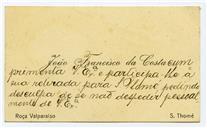 João Francisco da Costa cum
primenta V. Exª e participa-lhe a
sua retirada para S. Thomé pedindo
desculpa de se não despedir pessoal
mente de V. Exª
Roça Valparaizo
S. Thomé